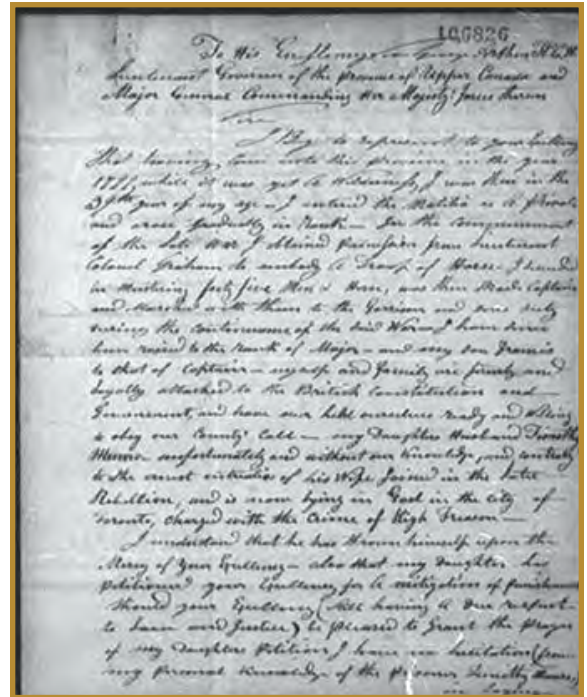 106826
To His Excellency Sir George Arthur K.C.H.
Lieutenant Governor of the Province of Upper Canada and
Major General Commanding Her Majesty's Forces therein
Sir
I Beg to represent to your Excellency
That having come into this Province in the year
while it was yet a Wilderness, I was then in the
year of my age – I entered the Militia as a Private
and arose gradually in Rank – In the commencement
of the late War I obtained Permission from Lieutenant
Colonel Graham to embody a Troop of Horse – I succeeded
in Mustering forty five Men & Horses, was then Made Captain
and Marched with them to the Garrison and done duty
during the continuance of the said War – I have since
been raised to the Rank of Major – and my son Francis
to that of Captain – myself and family are firmly and
loyally attached to the British Constitution and
Government, and have ever held ourselves ready and willing
to obey our County's Call – my Daughters Husband Timothy
Munro unfortunately and without our Knowledge, and contrary
to the ernest intreaties of his Wife joined in the late
Rebellion, and is now lying in Gaol in the city of
Toronto, charged with the Crime of High Treason –
I understand that he has thrown himself upon the
Mercy of Your Excellency – also that my Daughter has
Petitioned your Excellency for a mitigation of punishment
Should your Excellency (still having a due respect
to Laws and Justice) be pleased to Grant the Prayer
of my Daughters Petition I have no hesitation (from
my Personal Knowledge of the Prisoner Timothy Munro)
in